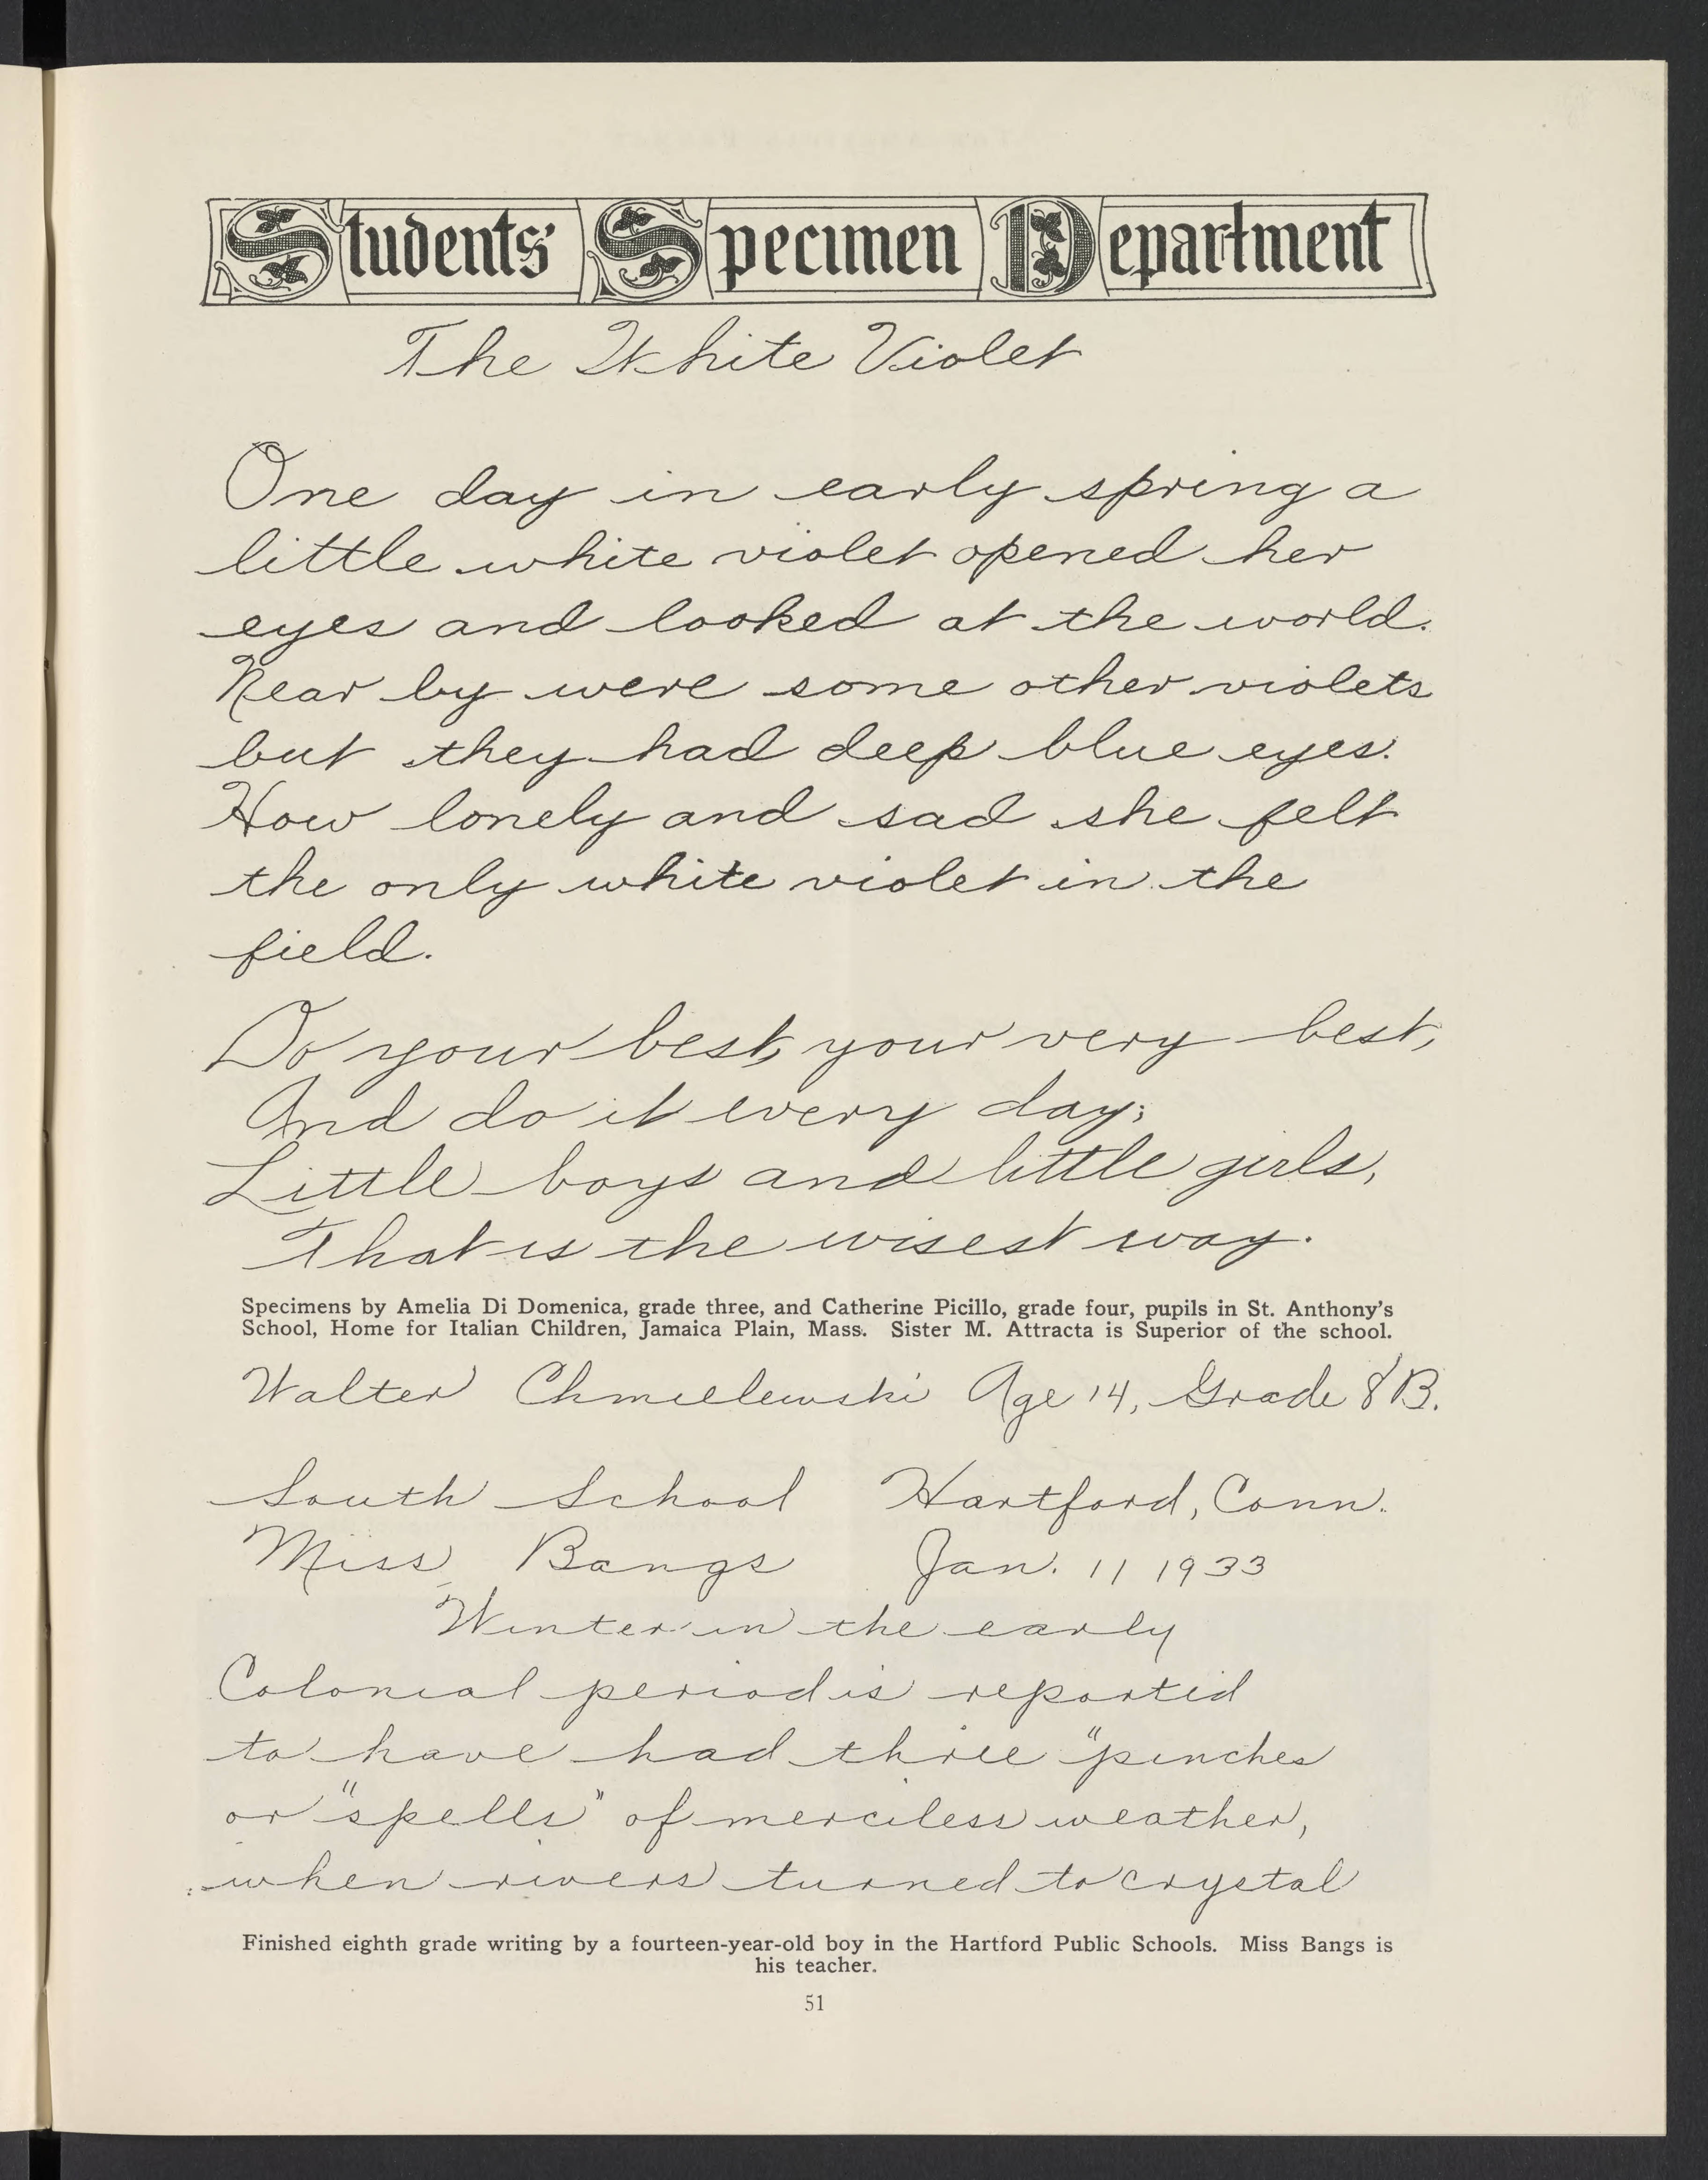 Students' Specimen Department
The White Violet
One day in early spring a
little white violet opened her
eyes and looked at the world.
Near by were some other violets
but they had deep blue eyes.
How lonely and sad she felt
the only white violet in the
field.
Do your best, your very best,
And do it every day;
Little boys and little girls,
That is the wisest way.
Specimens by Amelia Di Domenica, grade three, and Catherine Picillo, grade four, pupils in St. Anthony's
School, Home for Italian Children, Jamaica Plain, Mass. Sister M. Attracta is Superior of the school.
Walter Chmielewski Age 14, Grade 8B.
South School Hartford, Conn.
Miss Bangs Jan. 11 1933
Winter in the early
Colonial period is reported
to have had three "pinches
or "spells" of merciless weather,
when rivers turned to crystal
Finished eighth grade writing by a fourteen-year-old boy in the Hartford Public Schools. Miss Bangs is
his teacher.
51